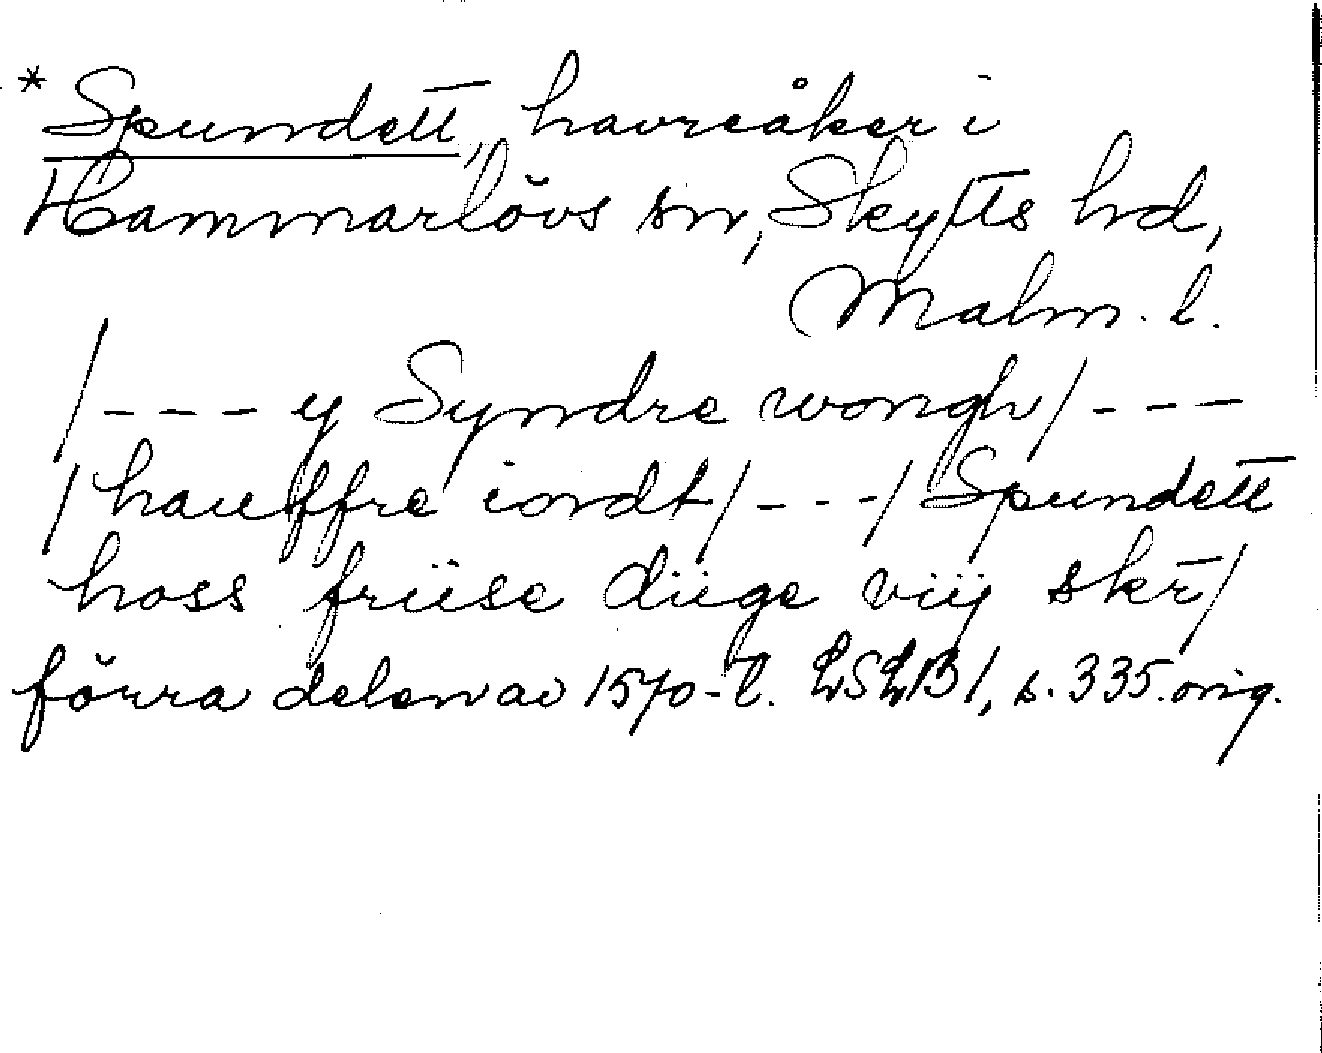 *Spundett, havreåker i
Hammarlövs sn, Skytts hd,
Malm. l.
/--- y Syndre wongh/---
/haueffre iordt/---/Spundett
hoss friise diige viij skr/
förra delen av 1570-t. LSLB 1, s. 335. orig.